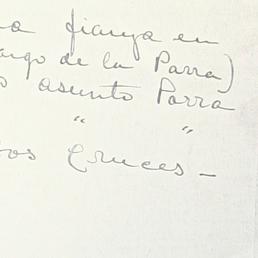 a fianza en
argo de la Parra)
o asunto Parra
" "
os Cruces -